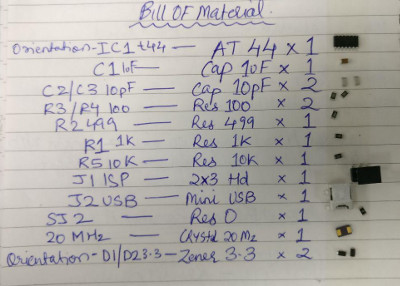 Bill Of Material.
Orientation-IC1 t44 — AT 44 × 1
C1 1uF — Cap 1uF × 1
C2/C3 10pF — Cap 10pF × 2
R3/R4 100 — Res 100 × 2
R2 499 — Res 499 × 1
R1 1K — Res 1K × 1
R5 10K — Res 10K × 1
J1 ISP — 2x3 Hd × 1
J2 USB — Mini USB × 1
SJ2 — Res 0 × 1
20 MHz — Crystal 20 Mz × 1
Orientation-D1/D2 3.3 — Zener 3.3 × 2